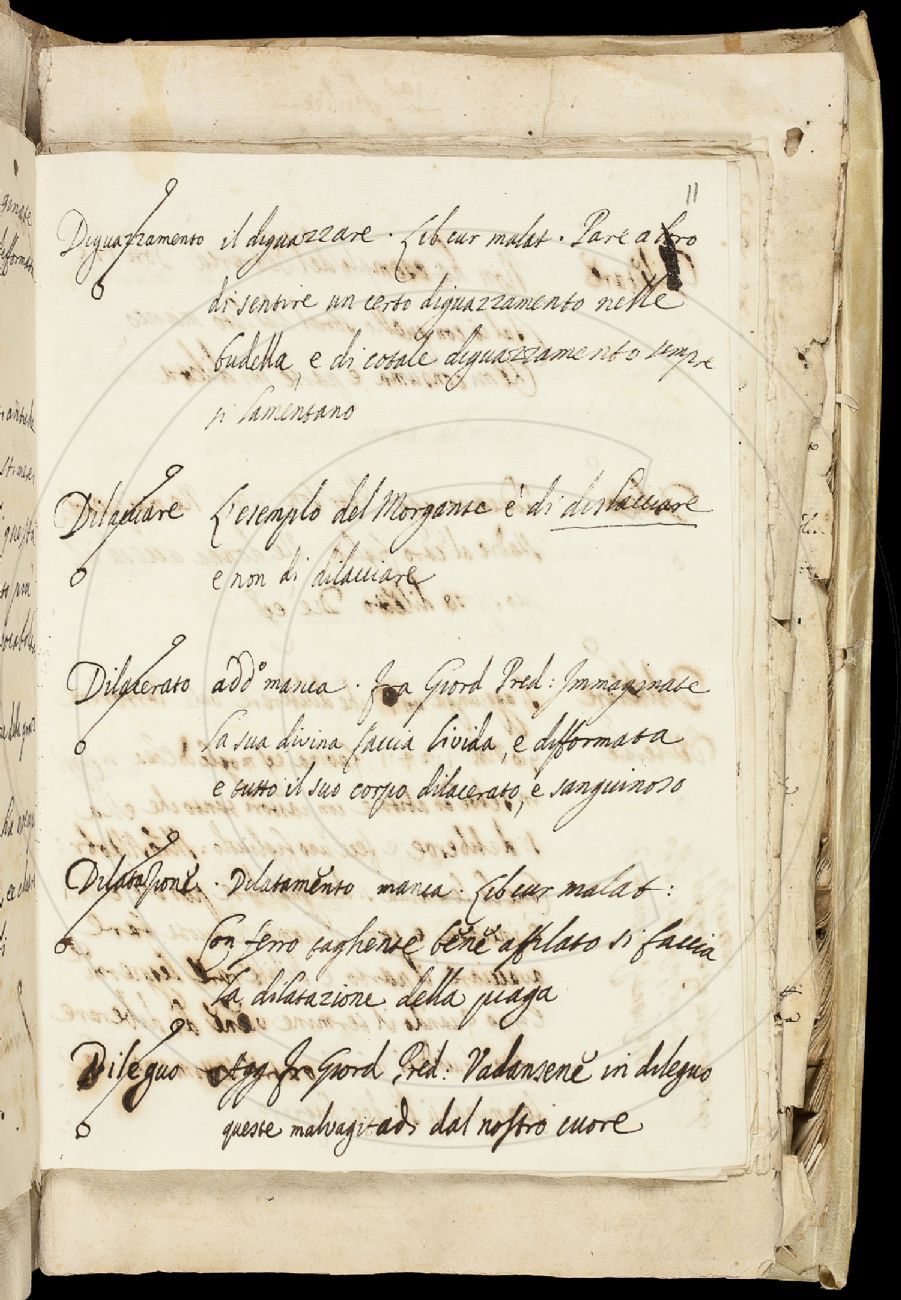 11
Diguazzamento il diguazzare . Lib cur malat . Pare a loro
di sentire un certo diguazzamento nelle
budella, e di cotale diguazzamento sempre
si lamentano
Dilacciare L'esemplo del Morgante è di dislacciare
e non di dilacciare
Dilacerato add.o manca . Fra Giord Pred: Immaginate
la sua divina faccia livida, e difformata
e tutto il suo corpo dilacerato, e sanguinoso
Dilatazione . Dilatamento manca . Lib cur malat :
Con ferro tagliente bene affilato si faccia
la dilatazione della piaga
Dileguo Agg Fr Giord Pred: Vadansene in dileguo
queste malvagitadi dal nostro cuore